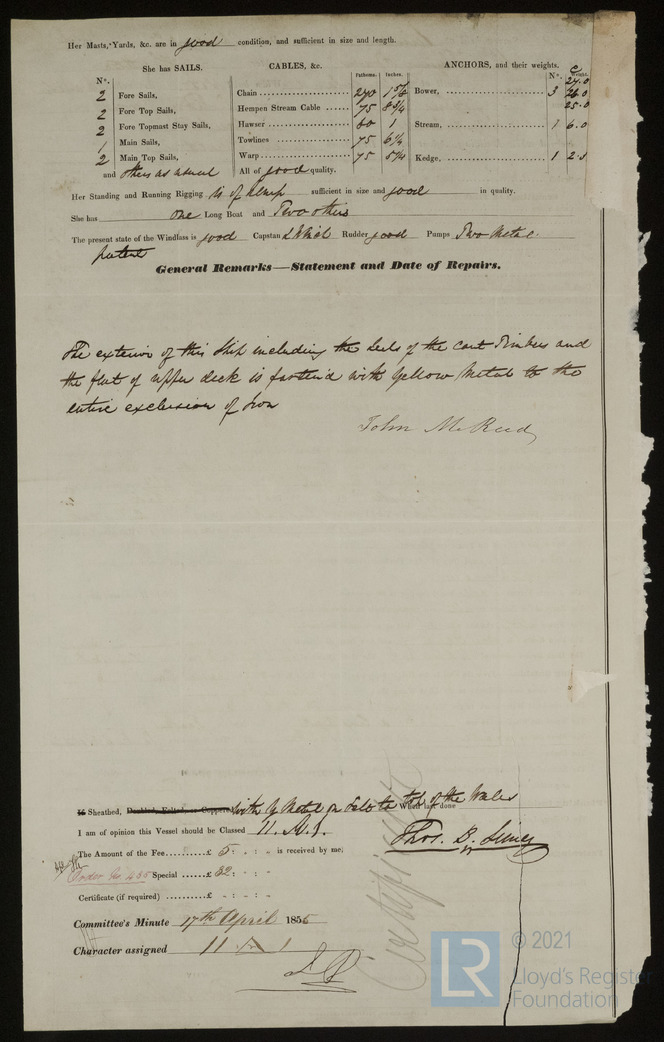 Her Masts, Yards, &c. are in good condition, and sufficient in size and length.
She has SAILS.
CABLES, &c.
ANCHORS, and their weights.
Nº.
Fathoms.
Inches.
Nº.
Weight.
2 Fore Sails,
2 Fore Top Sails,
2 Fore Topmast Stay Sails,
1 Main Sails,
2 Main Top Sails,
and others as usual
Chain 240
Hempen Stream Cable 75 8 3/4
Hawser 60 1
Towlines 75 6 1/4
Warp 75 5 1/4
All of good quality.
Bower, 3
25.0
Stream, 1 6.0
Kedge, 1
Her Standing and Running Rigging is of hemp sufficient in size and good in quality.
She has one Long Boat and Two others
The present state of the Windlass is good Capstan Rudder good Pumps Two Metal
patent
General Remarks—Statement and Date of Repairs.
The exterior of this Ship including the heels of the cant Timbers and
the flat of upper deck is fastened with Yellow Metal to the
entire exclusion of Iron
John
Sheathed, Doubled, Felted, or Coppered with Y Metal on Felt to top of the Wales When last done
I am of opinion this Vessel should be Classed 11. A. 1.
Thos. B. Simey
The Amount of the Fee £ 5 : - : - is received by me;
Special £ 32 : - : -
Certificate (if required) £ - : - : -
Certificate
Committee's Minute 17th April 1855
Character assigned 11 A 1
LR
© 2021
Lloyd's Register
Foundation